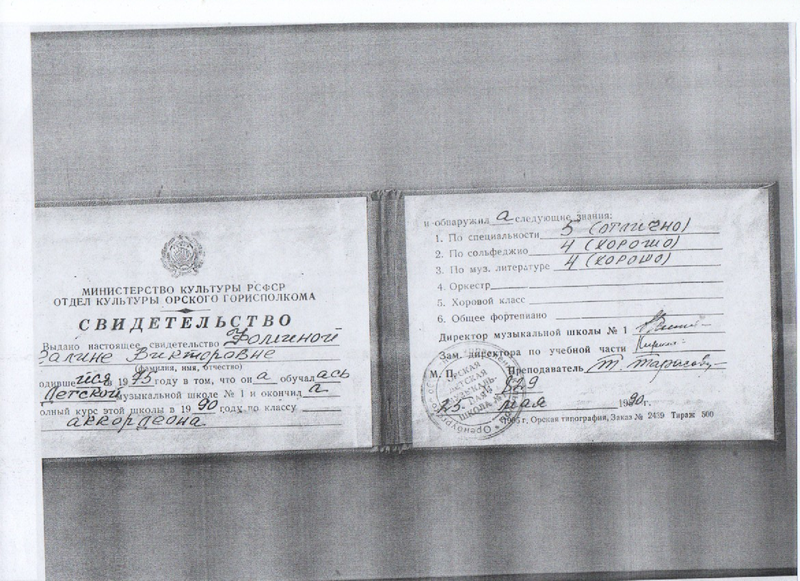 МИНИСТЕРСТВО КУЛЬТУРЫ РСФСР
ОТДЕЛ КУЛЬТУРЫ ОРСКОГО ГОРИСПОЛКОМА
СВИДЕТЕЛЬСТВО
Выдано настоящее свидетельство Фоминой
Галине Викторовне
(фамилия, имя, отчество)
одившейся в 1975 году в том, что она обучалась
Детской музыкальной школе № 1 и окончила
олный курс этой школы в 1990 году по классу
аккордеона
и обнаружила следующие знания:
1. По специальности 5 (отлично)
2. По сольфеджио 4 (хорошо)
3. По муз. литературе 4 (хорошо)
4. Оркестр
5. Хоровой класс
6. Общее фортепиано
Директор музыкальной школы № 1
Зам. директора по учебной части
М. П. Преподаватель Т. Тарасова
829
25 мая 1990 г.
г, Орская типография, Заказ № 2439 Тираж 500